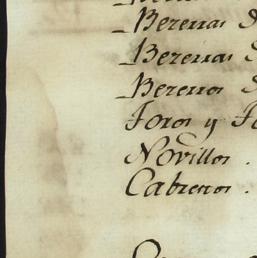 Bezerras
Bezerras
Bezerros
Toros y
Novillos.
Cabreros.